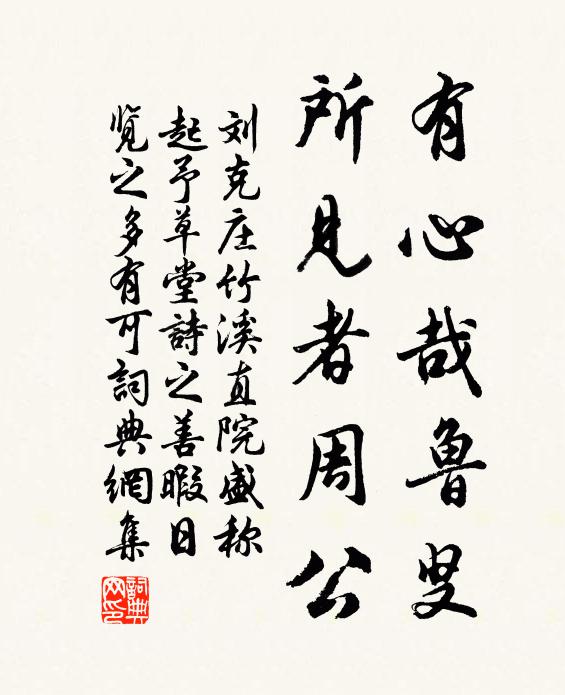 有心哉鲁叟
所見者周公
刘克庄竹溪直院盛称
起予草堂詩之善暇日
览之多有可詞典網集
詞典网印